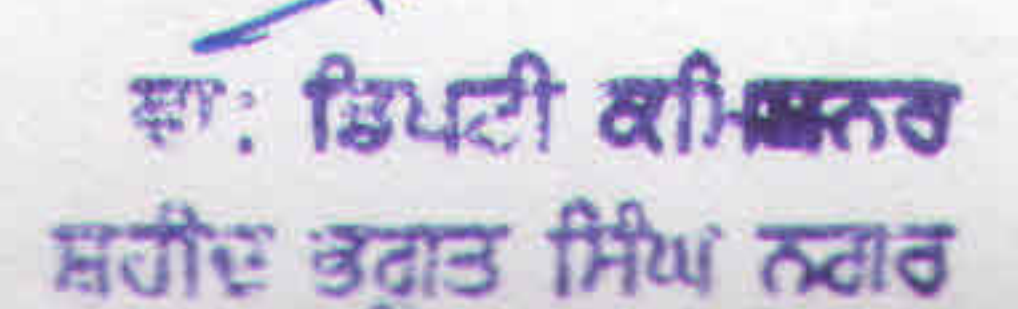 ਵਾ: ਡਿਪਟੀ ਕਮਿਸ਼ਨਰ
ਸ਼ਹੀਦ ਭਗਤ ਸਿੰਘ ਨਗਰ